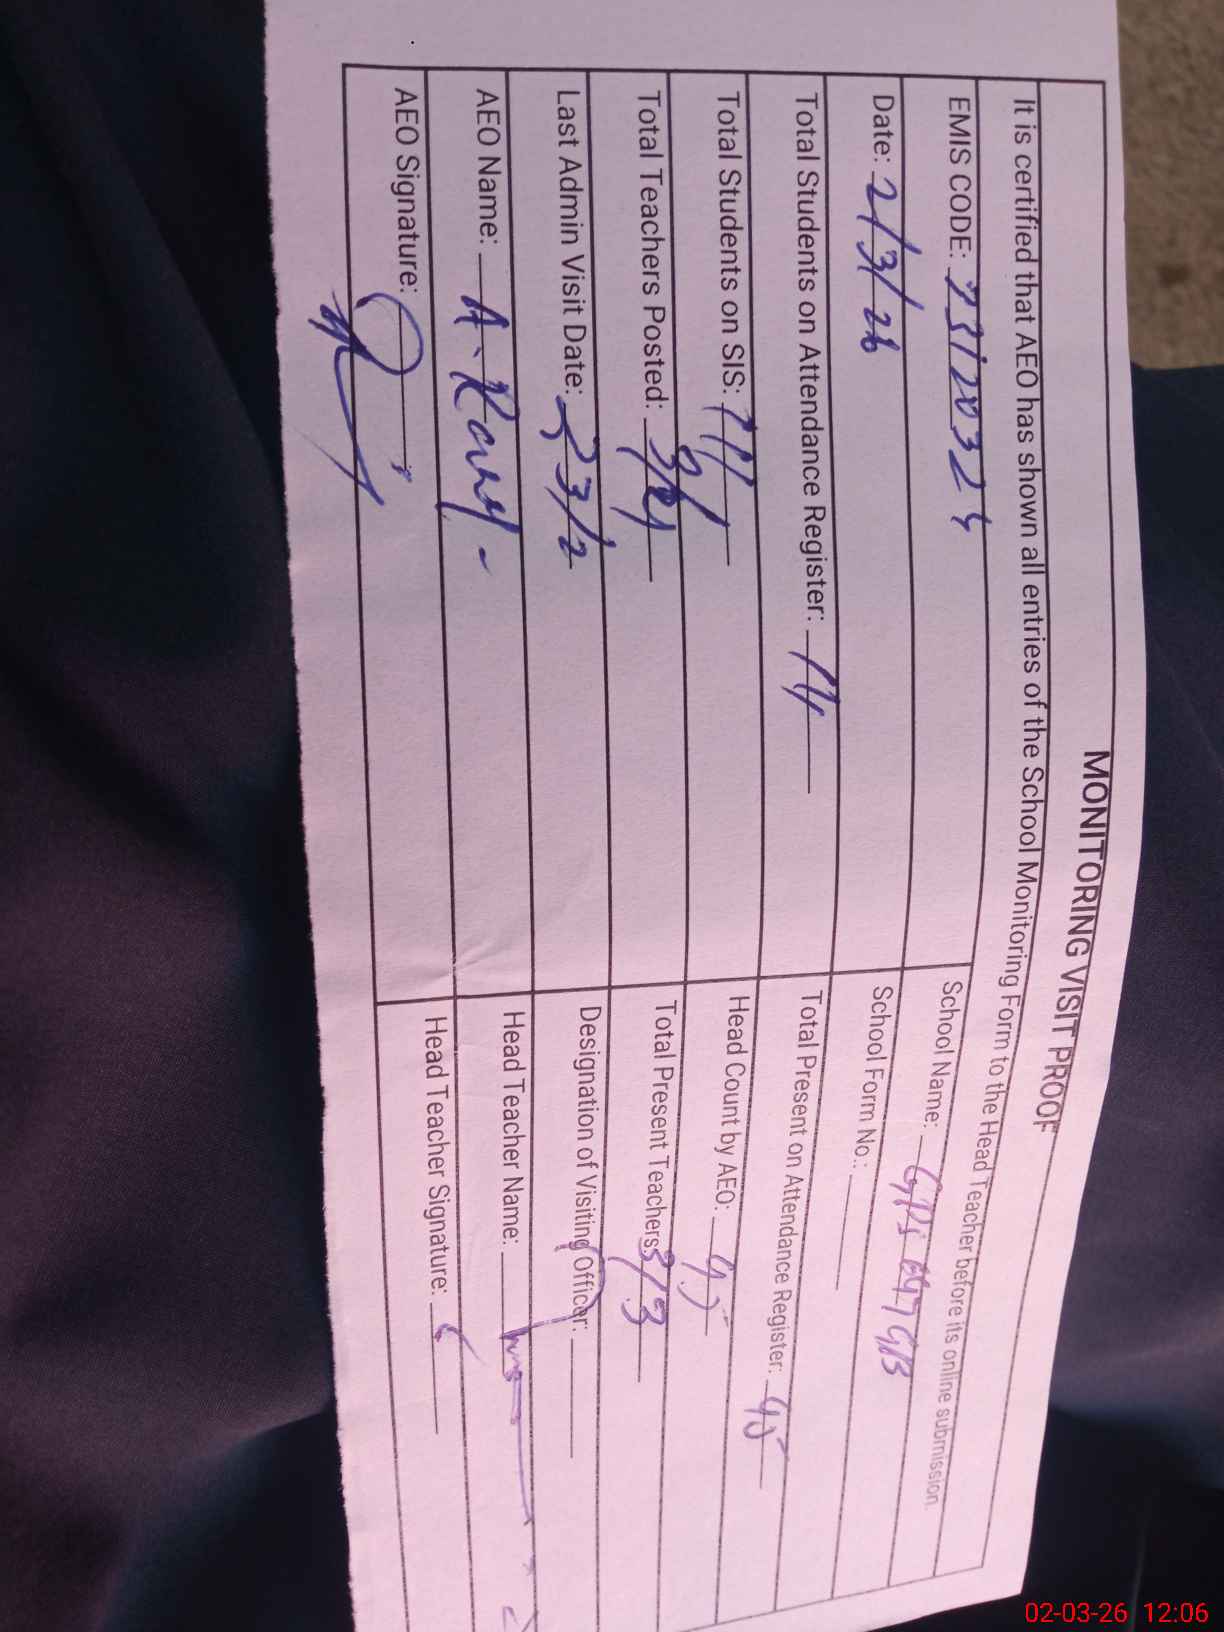 MONITORING VISIT PROOF
It is certified that AEO has shown all entries of the School Monitoring Form to the Head Teacher before its online submission.
EMIS CODE: School Name: GPS GB
Date: 2/3/26 School Form No.:
Total Students on Attendance Register: Total Present on Attendance Register: 95
Total Students on SIS: Head Count by AEO: 95
Total Teachers Posted: Total Present Teachers: 3/3
Last Admin Visit Date: 23/2 Designation of Visiting Officer:
AEO Name: A. Head Teacher Name:
AEO Signature: Head Teacher Signature:
02-03-26 12:06